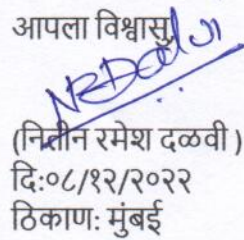 आपला विश्वासु
(नितीन रमेश दळवी )
दि:०८/१२/२०२२
ठिकाण: मुंबई